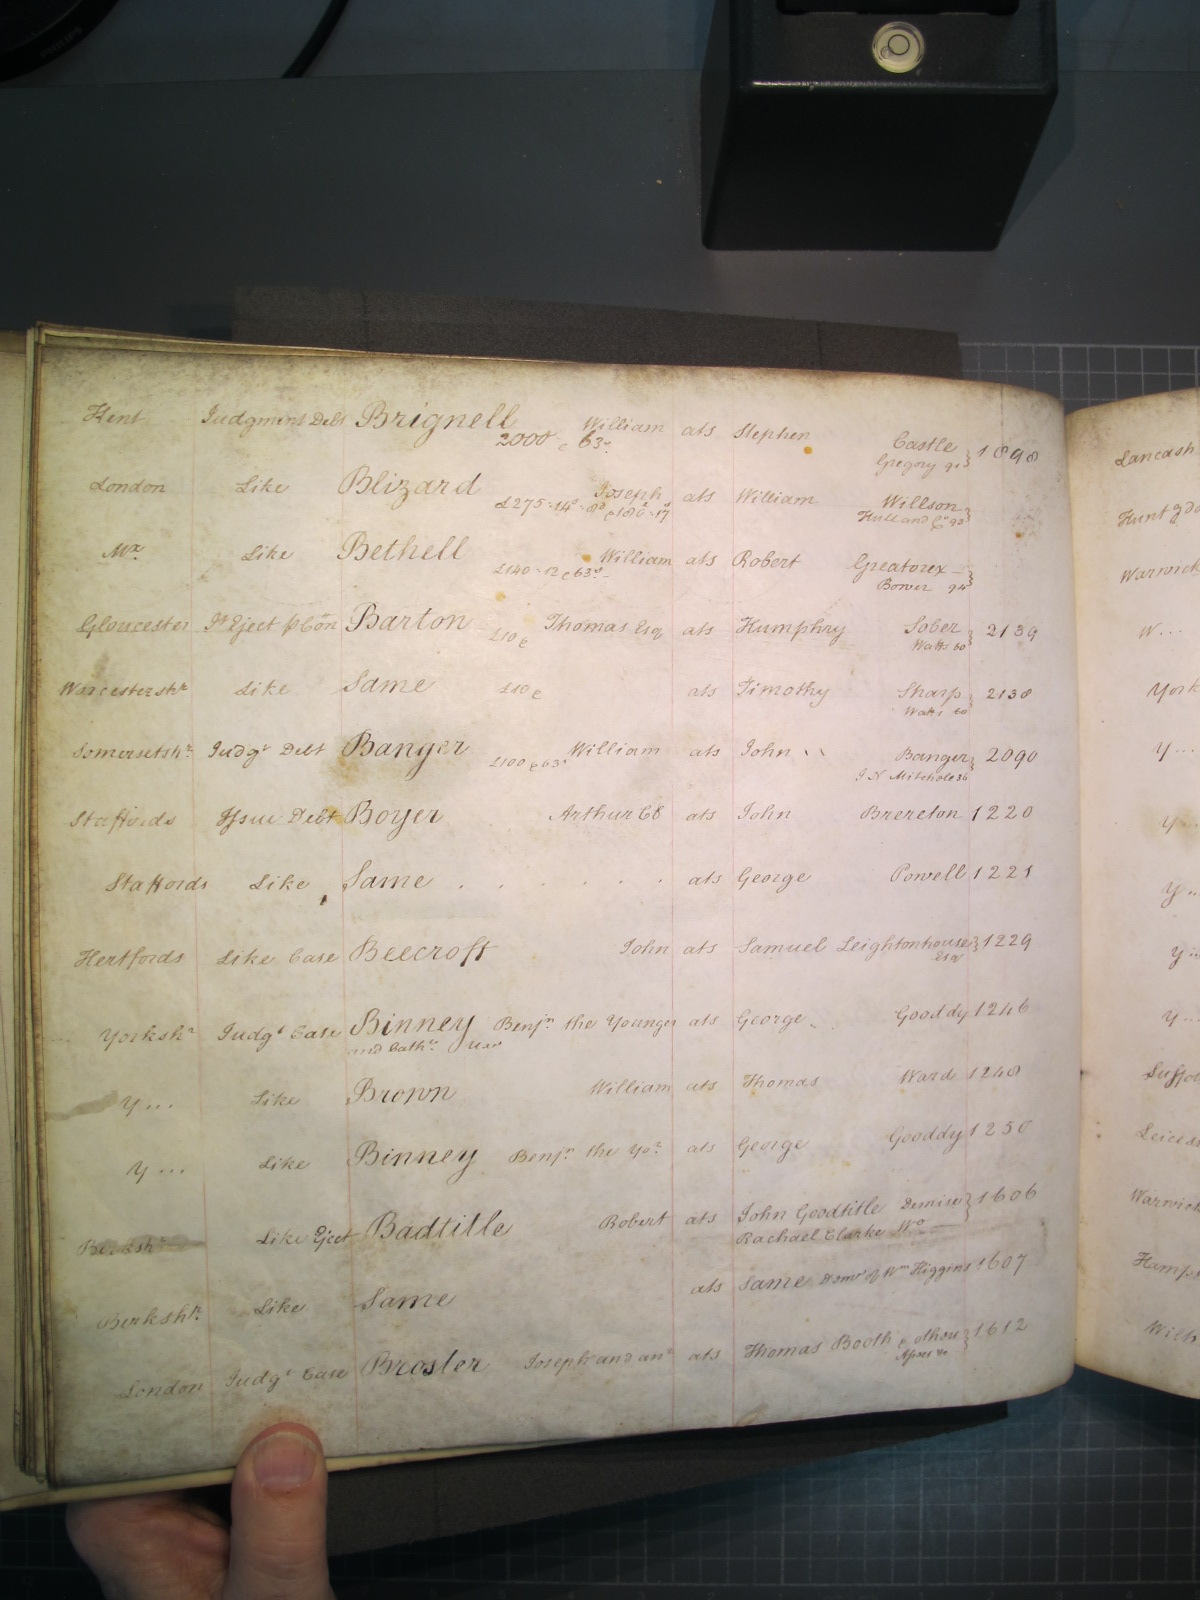 Kent Judgment Debt Brignell William ats Stephen Castle 1898
2000 & 63s. Gregory 91
London Like Blizard Joseph ats William Willson
£275.14s.8d Hull and Co 93
Mx Like Bethell William ats Robert Greatorex
£140.12 & 63s. Bower 94
Gloucester Jt Eject p Con Barton £10 & Thomas Esq ats Humphry Sober 2139
Watts 60
Worcestershr Like Same £10 & ats Timothy Sharp 2138
Watts 60
Somersetshr Judgt Debt Banger William ats John Banger 2090
£100 & 63s J N Mitchele 36
Staffords Issue Debt Boyer Arthur C8 ats John Brereton 1220
Staffords Like Same . . . . . . ats George Powell 1221
Hertfords Like Case Beecroft John ats Samuel Leightonhouse 1229
Esqr
Yorkshr Judgt Case Binney Benjn the Younger ats George Gooddy 1246
and Cathe Uxr
Y... Like Brown William ats Thomas Ward 1248
Y... Like Binney Benjn the Yor ats George Gooddy 1250
Berkshr Like Eject Badtitle Robert ats John Goodtitle Demise 1606
Rachael Clarke Wo
Berkshr Like Same ats Same Demse of Wm Higgins 1607
London Judgt Case Broster Joseph and anr ats Thomas Booth & others 1612
Lancash
Huntgdo
Warwick
W...
York
Y...
Y...
Y...
Y...
Y...
Suffol
Leices
Warwick
Hamps
Wilts